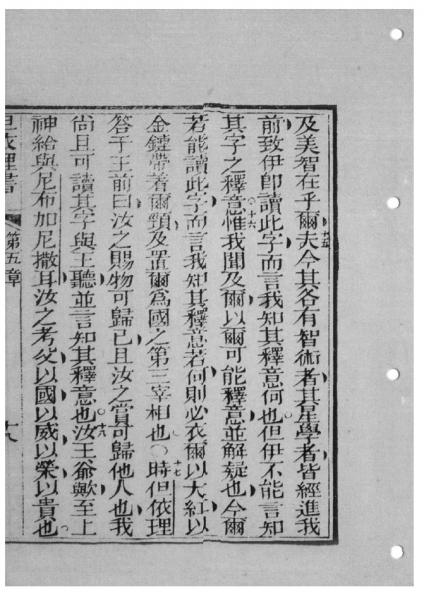 及美智在乎爾夫今其各有智術者其星學者皆經進我
前致伊卽讀此字而言我知其釋意何也但伊不能言知
其字之釋意惟我聞及爾以爾可能釋意並解疑也今爾
若能讀此字而言我知其釋意若何則必衣爾以大紅以
金鏈帶着爾頸及置爾爲國之第三宰相也○時但依理
答于王前曰汝之賜物可歸已且汝之賞可歸他人也我
尚且可讀其字與王聽並言知其釋意也汝王爺歟至上
神給與尼布加尼撒耳汝之考父以國以威以榮以貴也
但依理書 第五章 十八